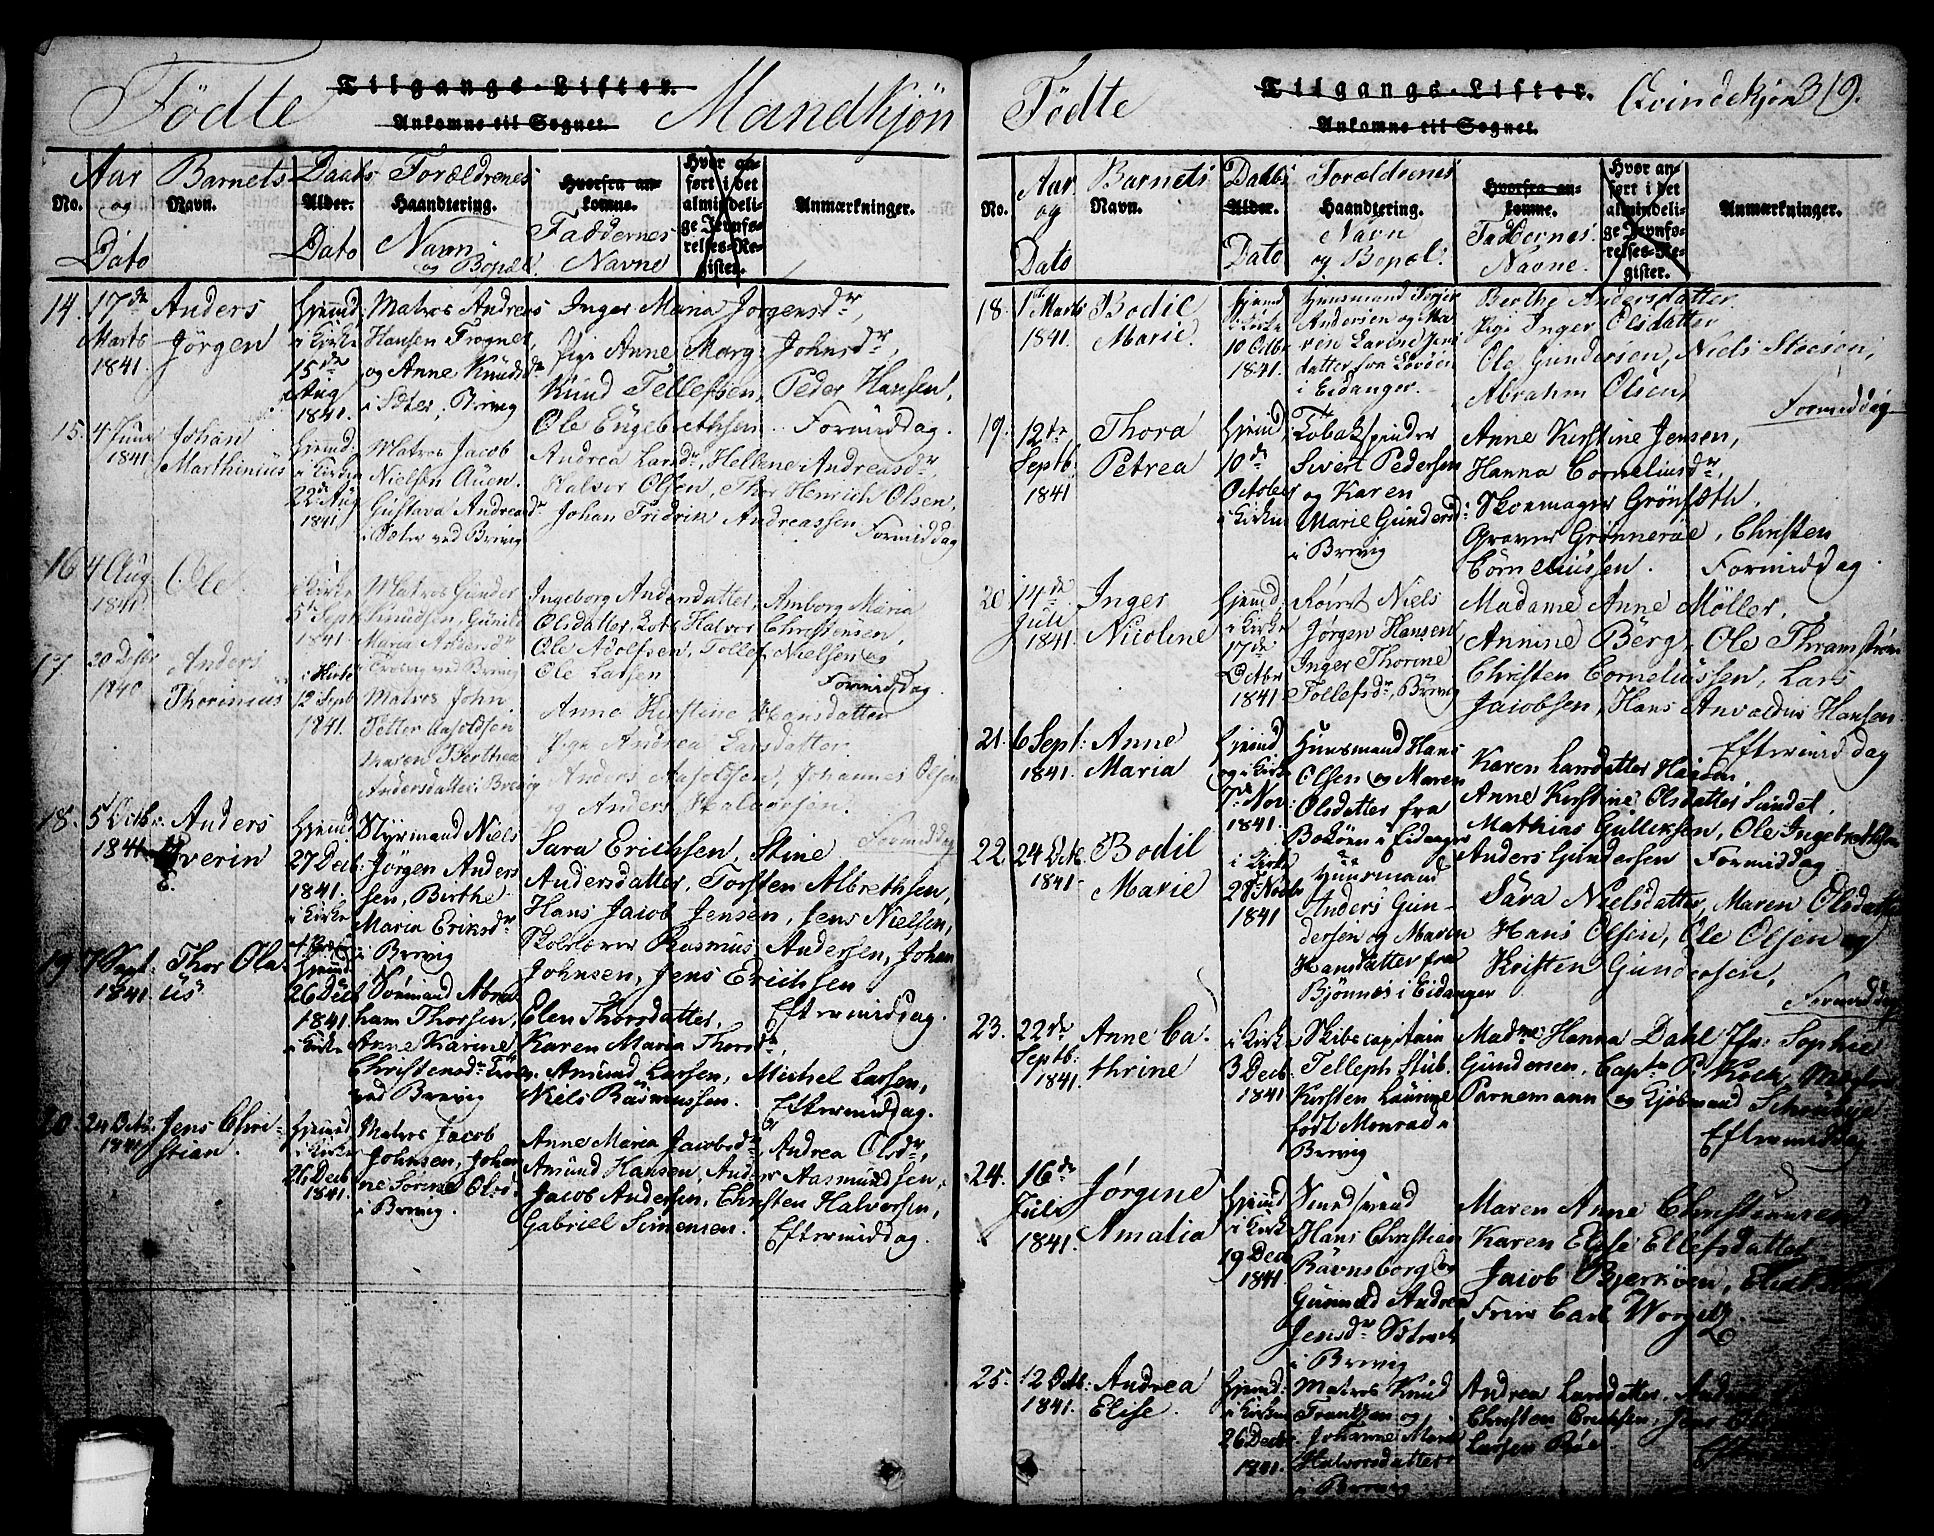 Födte
Tilgangs-Lister.
Ankomne til Sognet.
Mandkjön
No.
Aar
og
Dato
Barnets
Navn.
Daabs
Alder.
Dato
Forældrenes
Haandtering.
Navn
og Bopæl.
Hvorfra ankomne.
Faddernes
Navne
Hvor anført i det almindelige Jevnførelses-Register.
Anmærkninger.
14.
17de
Marts
1841.
Anders
Jörgen
Hjemd
i Kirke
15de
Aug
1841.
Matros Andreas
Hansen Trogner
og Anne Knudsdr
i Sæter, Brevig
Inger Maria Jörgensdr,
Pige Anne Marg Johnsdr,
Knud Tellefsen, Peder Hansen,
Ole Engebrethsen. Formiddag.
15.
4 Juni
1841
Johan
Marthinius
Hjemd
i Kirken
22de Aug
1841.
Matros Jacob
Nielsen Auen.
Gustava Andreasdr
i Sæter ved Brevig
Andrea Larsdr, Hellene Andreasdr
Halvor Olsen, Thor Henrich Olsen,
Johan Fridrik Andreassen Formiddag
16
4 Aug
1841
Ole
i Kirke
5te Sept
1841
Matros Gunder
Knudsen, Gunild
Maria Andersdr
ved Brevig
Ingeborg Andersdatter, Amborg Maria
Olsdatter, Lods Halvor Christensen,
Ole Adolfsen, Tollef Nielsen og
Ole Larsen
Formiddag.
17
20 Decbr
1840
Anders
Thorinius
i Kirke
12 Sept
1841.
Matros John
Petter Aasoldsen
Karen Berthea
Andersdatter, Brevig
Anne Kirstine Hansdatter
Pige Andrea Larsdatter
Anders Aasoldsen, Johannes Olsen
og Anders Halvorsen.
Formiddag
18.
5 Octbr
1841
Anders
Severin
Hjemd
27 Decb:
1841.
i Kirke
Styrmand Niels
Jörgen Andersen,
Berthe
Maria Eriksdr
i Brevig
Sara Erichsen, Stine
Andersdatter, Torsten Albrethsen,
Hans Jacob Jensen, Jens Nielsen,
Skolelærer Rasmus Andersen, Johan
Johnsen, Jens Erichsen
Eftermiddag.
19
7 Sept:
1841.
Thor Olaus
Hjemd
26 Decb
1841.
i Kirke
Sömand Abraham
Thorsen,
Anne Karine
Christensdr
ved Brevig
Elen Thorsdatter,
Karen Maria Thorsdr,
Amund Larsen, Michel Larsen,
Niels Rasmussen.
Eftermiddag.
20.
24 Octr
1841
Jens Christian.
Hjemd
i Kirke
26 Decb
1841.
Matros Jacob
Johnsen, Johanne
Sörine Olsdr
i Brevig.
Anne Maria Jacobsdr, Andrea Olsdr,
Amund Hansen, Anders Aasmundsen,
Jacob Andersen, Christen Halvorsen,
Gabriel Simensen.
Eftermiddag.
Födte
Tilgangs-Lister.
Ankomne til Sognet.
Qvindekjön 319.
No.
Aar
og
Dato
Barnets
Navn.
Daabs
Alder.
Dato
Forældrenes
Haandtering.
Navn
og Bopæl.
Hvorfra ankomne.
Faddernes
Navne.
Hvor anført i det almindelige Jevnførelses-Register.
Anmærkninger.
18.
1ste Marts
1841.
Bodil
Marie.
Hjemd
i Kirke
10 Octbr
1841.
Huusmand Torjer
Andersen og Maren
Larine Jensdatter
fra Lövöen
i Eidanger.
Berthe Andersdatter
Pige Inger Olsdatter
Ole Gundersen, Niels Steesen,
Abrahm Olsen,
Formiddag
19.
12te
Septb:
1841
Thora
Petrea
Hjemd
10de
October
i Kirken
Tobakspinder
Sivert Pedersen
og Karen
Marie Gundersd:
i Brevig
Anne Kirstine Jensen,
Hanna Corneliusdr,
Skoemager Grönsæth,
Graver Grönneröe, Christen
Corneliussen. Formiddag.
20
14de
Juli
1841
Inger
Nicoline
Hjemd:
i Kirke
17de
Octbr
1841
Niels
Jörgen Hansen
Inger Thorine
Tollefsdr, Brevig
Madame Anne Möller,
Annine Berg, Ole Thramström
Christen Corneliussen, Lars
Jacobsen, Hans Anvaldus Hansen.
Eftermiddag
21.
6 Sept:
1841.
Anne
Maria
Hjemd
og i Kirke
7de Nov:
1841.
Huusmand Hans
Olsen og Maren
Olsdatter fra
i Eidanger
Karen Larsdatter Hagen,
Anne Kirstine Olsdatter Sundet,
Mathias Gulleksen, Ole Ingebrethsen
Anders Gundersen Formiddag
22.
24 Octb.
1841.
Bodil
Marie
i Kirke
28 Novbr
1841
Huusmand
Anders Gundersen
og Maren
Hansdatter fra
Bjönnes i Eidanger
Sara Nielsdatter, Maren Olsdatter
Hans Olsen, Ole Olsen og
Kristen Gundersen,
Formiddag
23.
22de
Septb:
1841.
Anne Cathrine
i Kirke
3 Decb:
1841
Skibscapitain
Telleph Stub.
Kirsten Laurine
födt Monrad
Brevig
Madme Hanna Dahl Jfr: Sophie
Gundersen, Captn P. Koch,
Parnemann og Kjöbmand
Eftermiddag
24.
16de
Juli
1841.
Jörgine
Amalia
Hjemd
i Kirke
19 Decb
1841
Smedsvend
Hans Christian
Ravnsborg og
Gunnild Andrea
Jensdr
i Brevig
Maren Anne
Karen Elise Ellefsdatter
Jacob Bjerköen,
Carl Worgitz.
25.
12 Octb:
1841.
Andrea
Elise
Hjemd:
i Kirken
26 Decbr.
1841.
Matros Knud
Frantzen og
Johanne Marie
Halvorsdatter
i Brevig
Andrea Larsdatter,
Christen Eriksen, Jens
Larsen Röe.